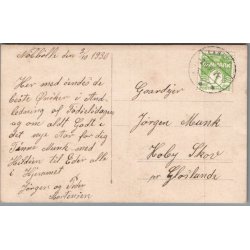 den 5/10 1930
Her med sendes de
beste Ønsker i And-
ledning af Fødselsdagen
og om aldt Godt i
det nye Aar for dig
Munk med
Hilsen til Eder alle
i Hjemmet
Jørgen og Peder
Mortensen
Gaardejer
Jørgen Munk
Koby Skov
pr
DANMARK